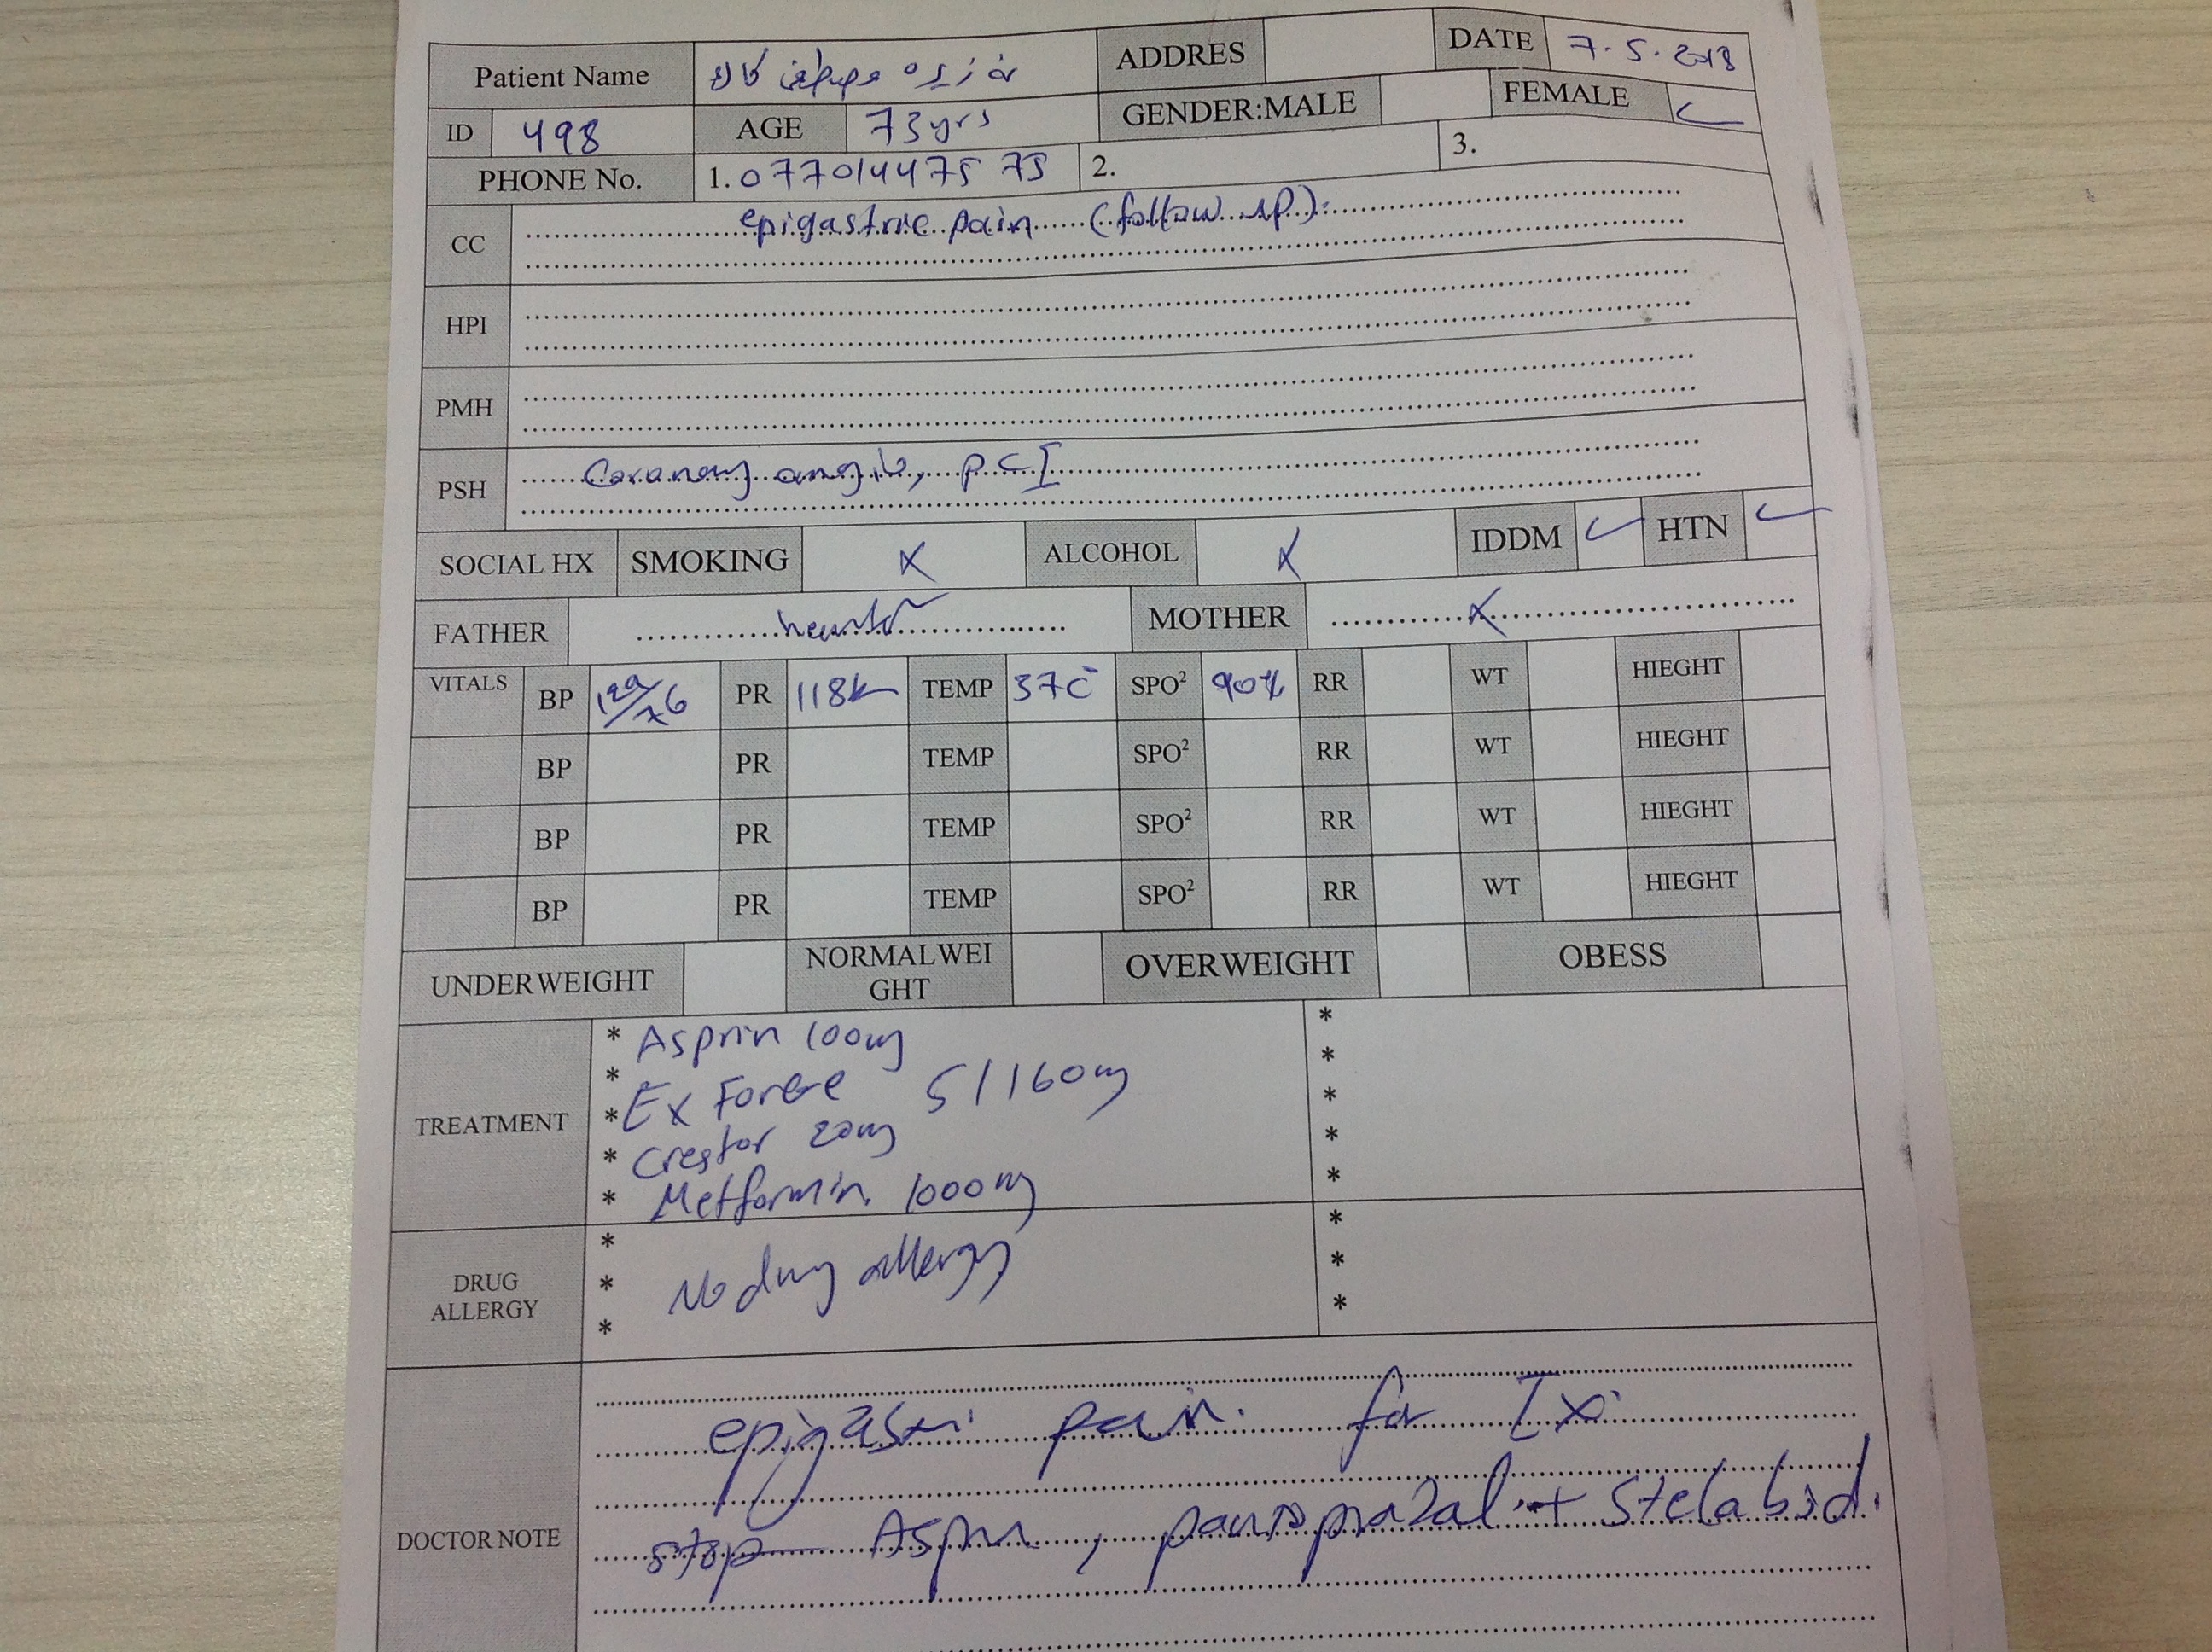 Patient Name مصطفى كاك ADDRES DATE 7.5.2018
ID 498 AGE 73yrs GENDER:MALE FEMALE ✓
PHONE No. 1. 07701447575 2. 3.
CC epigastric pain (follow up).
HPI
PMH
PSH Coronary angio, PCI
SOCIAL HX SMOKING X ALCOHOL X IDDM ✓ HTN ✓
FATHER MOTHER X
VITALS BP 129/76 PR 118 TEMP 37C SPO² 90% RR WT HIEGHT
BP PR TEMP SPO² RR WT HIEGHT
BP PR TEMP SPO² RR WT HIEGHT
BP PR TEMP SPO² RR WT HIEGHT
UNDERWEIGHT NORMALWEI
GHT OVERWEIGHT OBESS
TREATMENT
* Asprin 100mg *
* Ex Forge 5/160mg *
* Crestor 20mg *
* Metformin 1000mg *
* *
DRUG
ALLERGY
* *
* No drug allergy *
* *
DOCTOR NOTE
epigastri pain. for Ix
stop Asprin, pantoprazal + Stelabid.